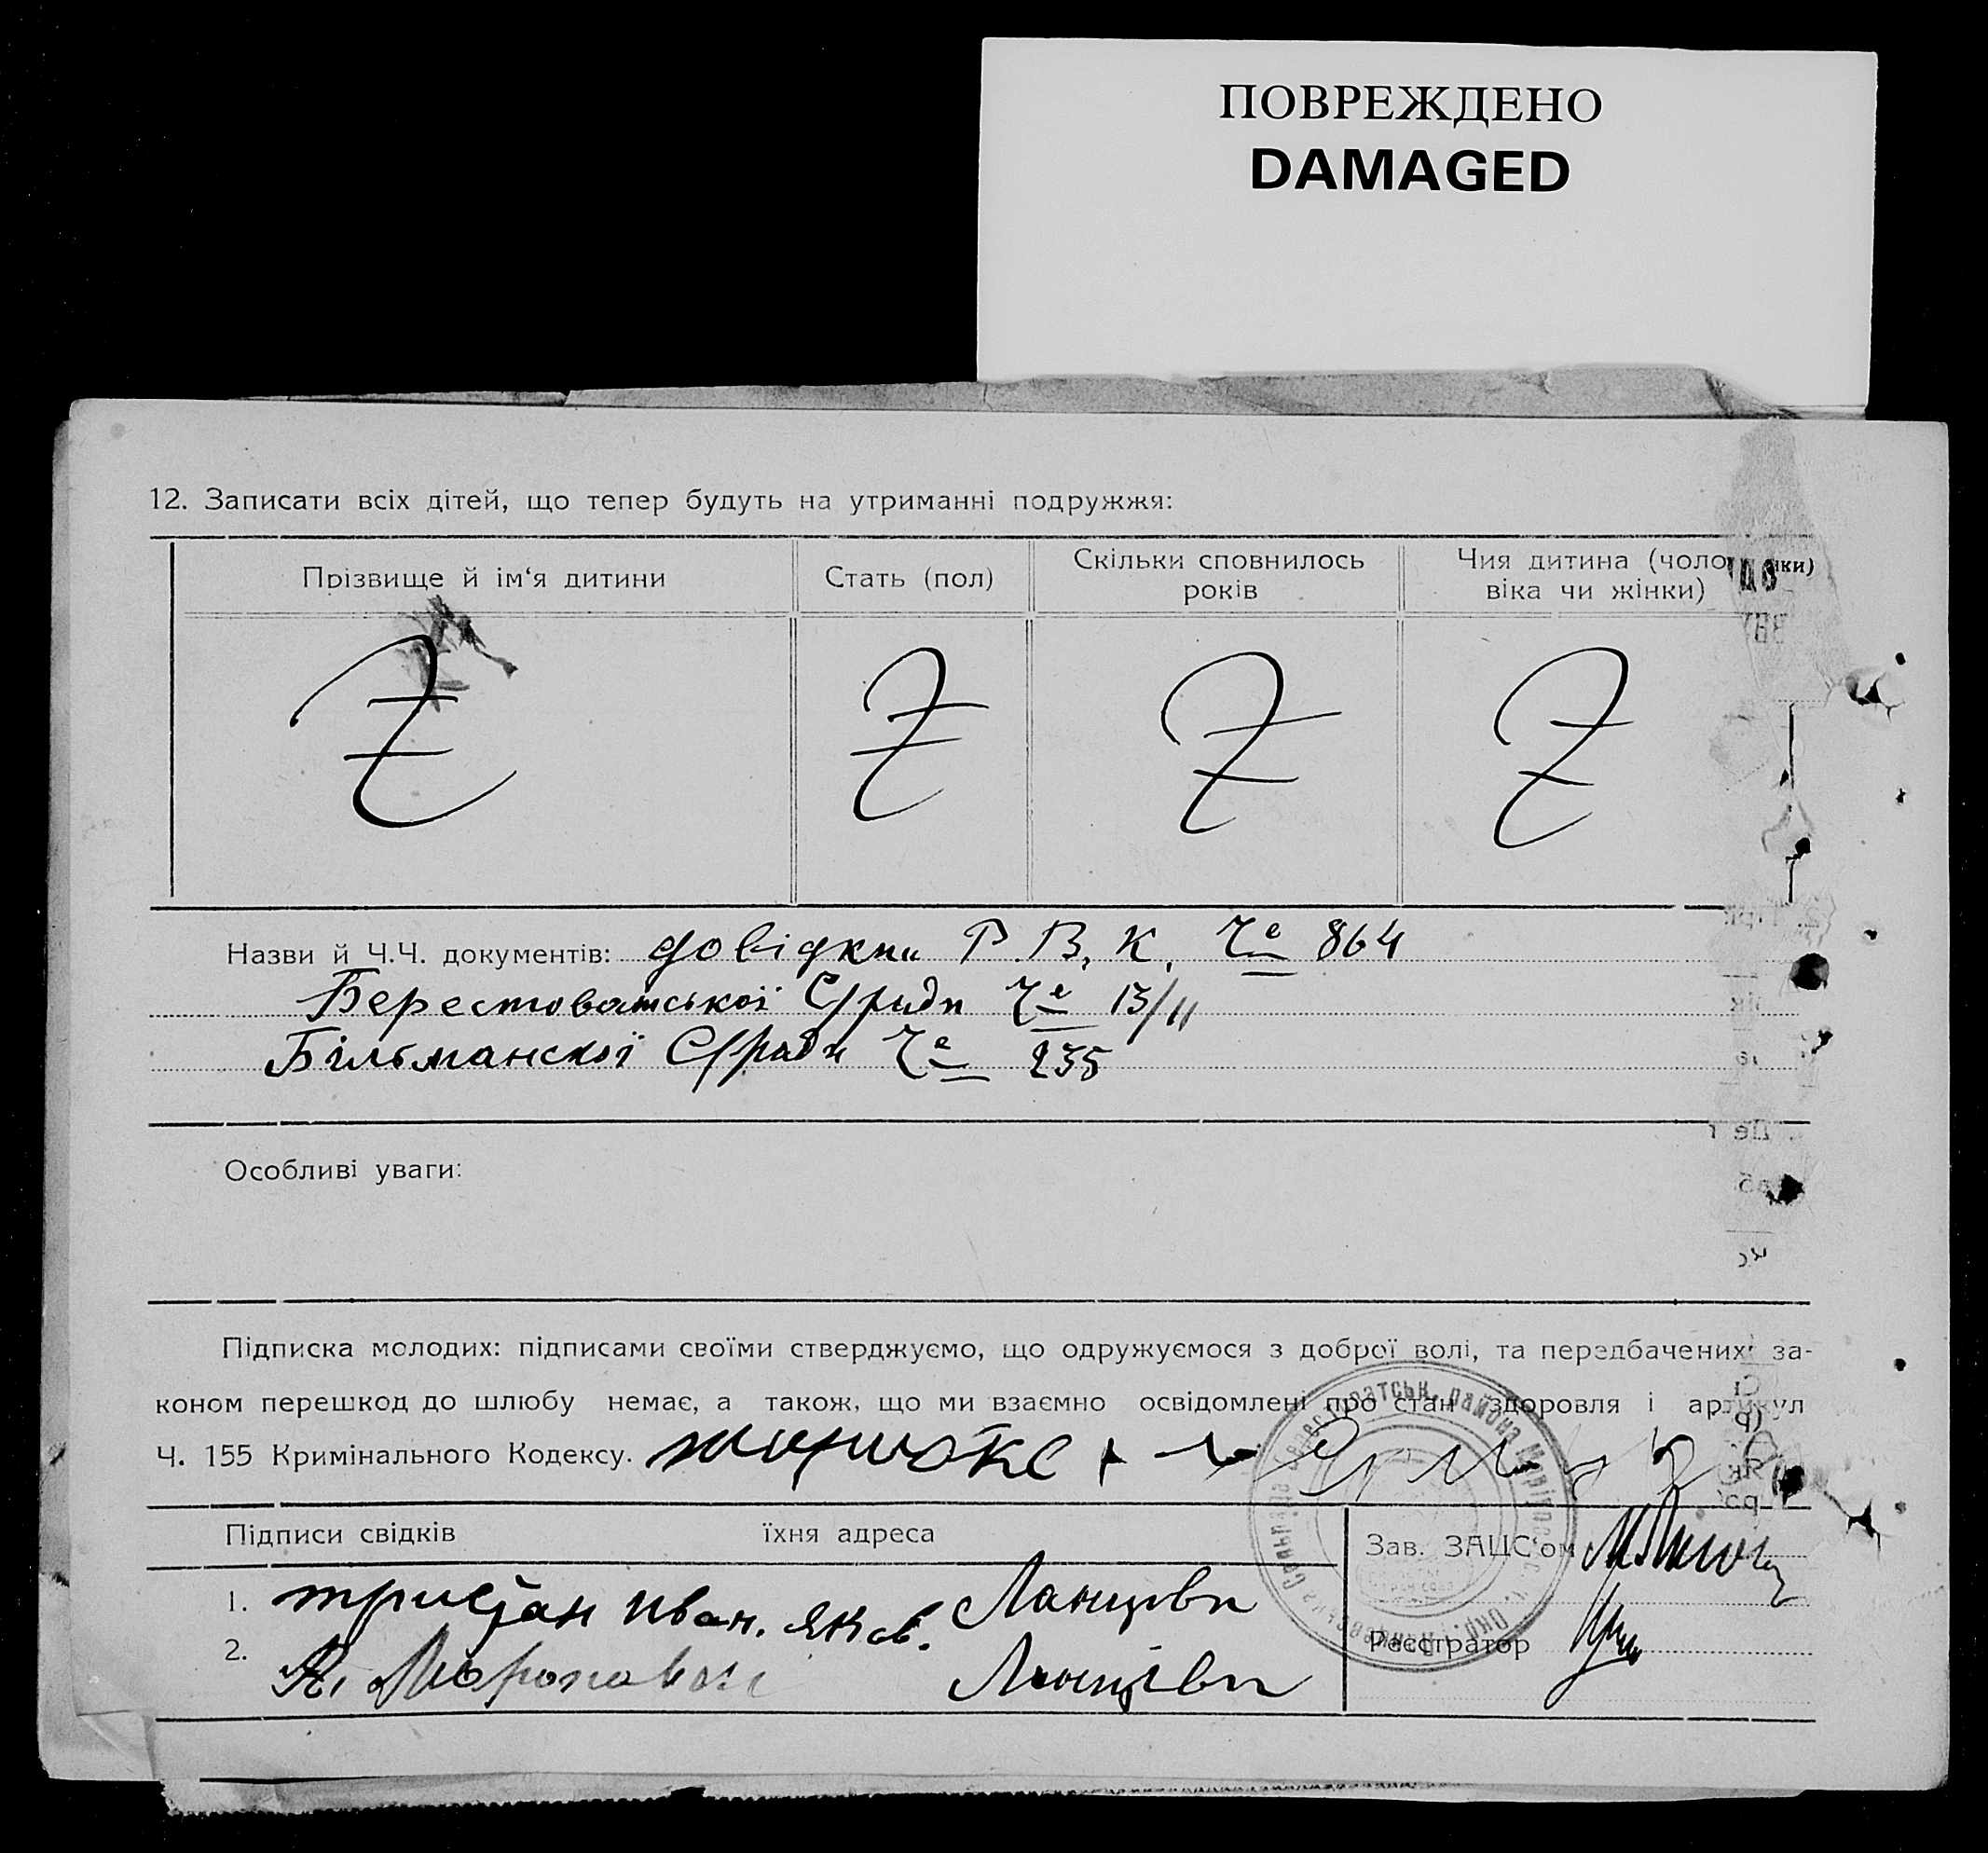 ПОВРЕЖДЕНО
DAMAGED
12. Записати всіх дітей, що тепер будуть на утриманні подружжя:
Прізвище й ім‘я дитини
Стать (пол)
Скільки сповнилось
років
Чия дитина (чоло
віка чи жінки)
Z
Z
Z
Z
Назви й Ч.Ч. документів: довідки Р.В.К. Че 864
Берестоватської С/ради Че 13/11
Більманскої С/ради Че 235
Особливі уваги:
Підписка молодих: підписами своїми стверджуємо, що одружуємося з доброї волі, та передбачених за-
коном перешкод до шлюбу немає, а також, що ми взаємно освідомлені про стан здоровля і артикул
Ч. 155 Кримінального Кодексу.
Підписи свідків їхня адреса
Зав. ЗАЦС‘ом
1. Иван. Яков. Ланцеви
2.
Реєстратор